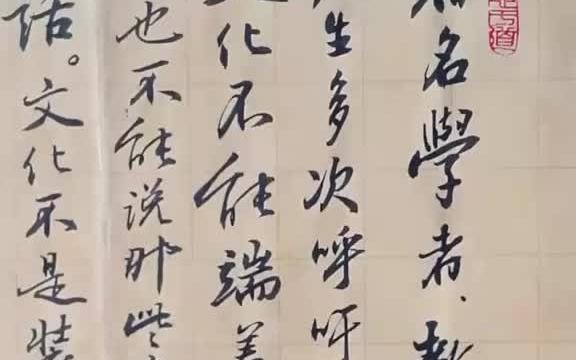 名學者、
生多次呼吁
化不能端着
也不能说那些
话。文化不是装